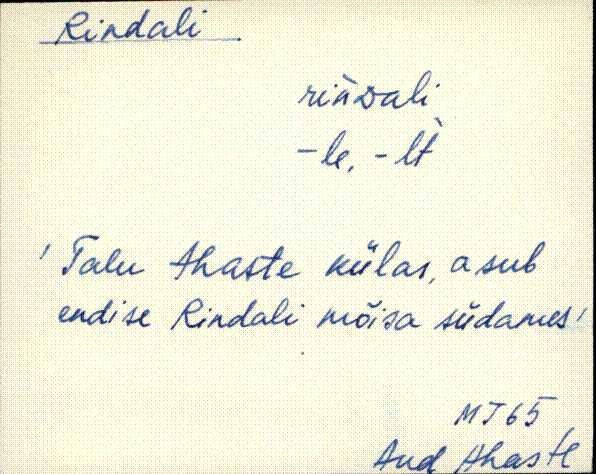 Rindali
rinDali
-le, -lt
' Talu Ahaste külas, asub
endise Rindali mõisa südames'
MT65
Aud Ahaste